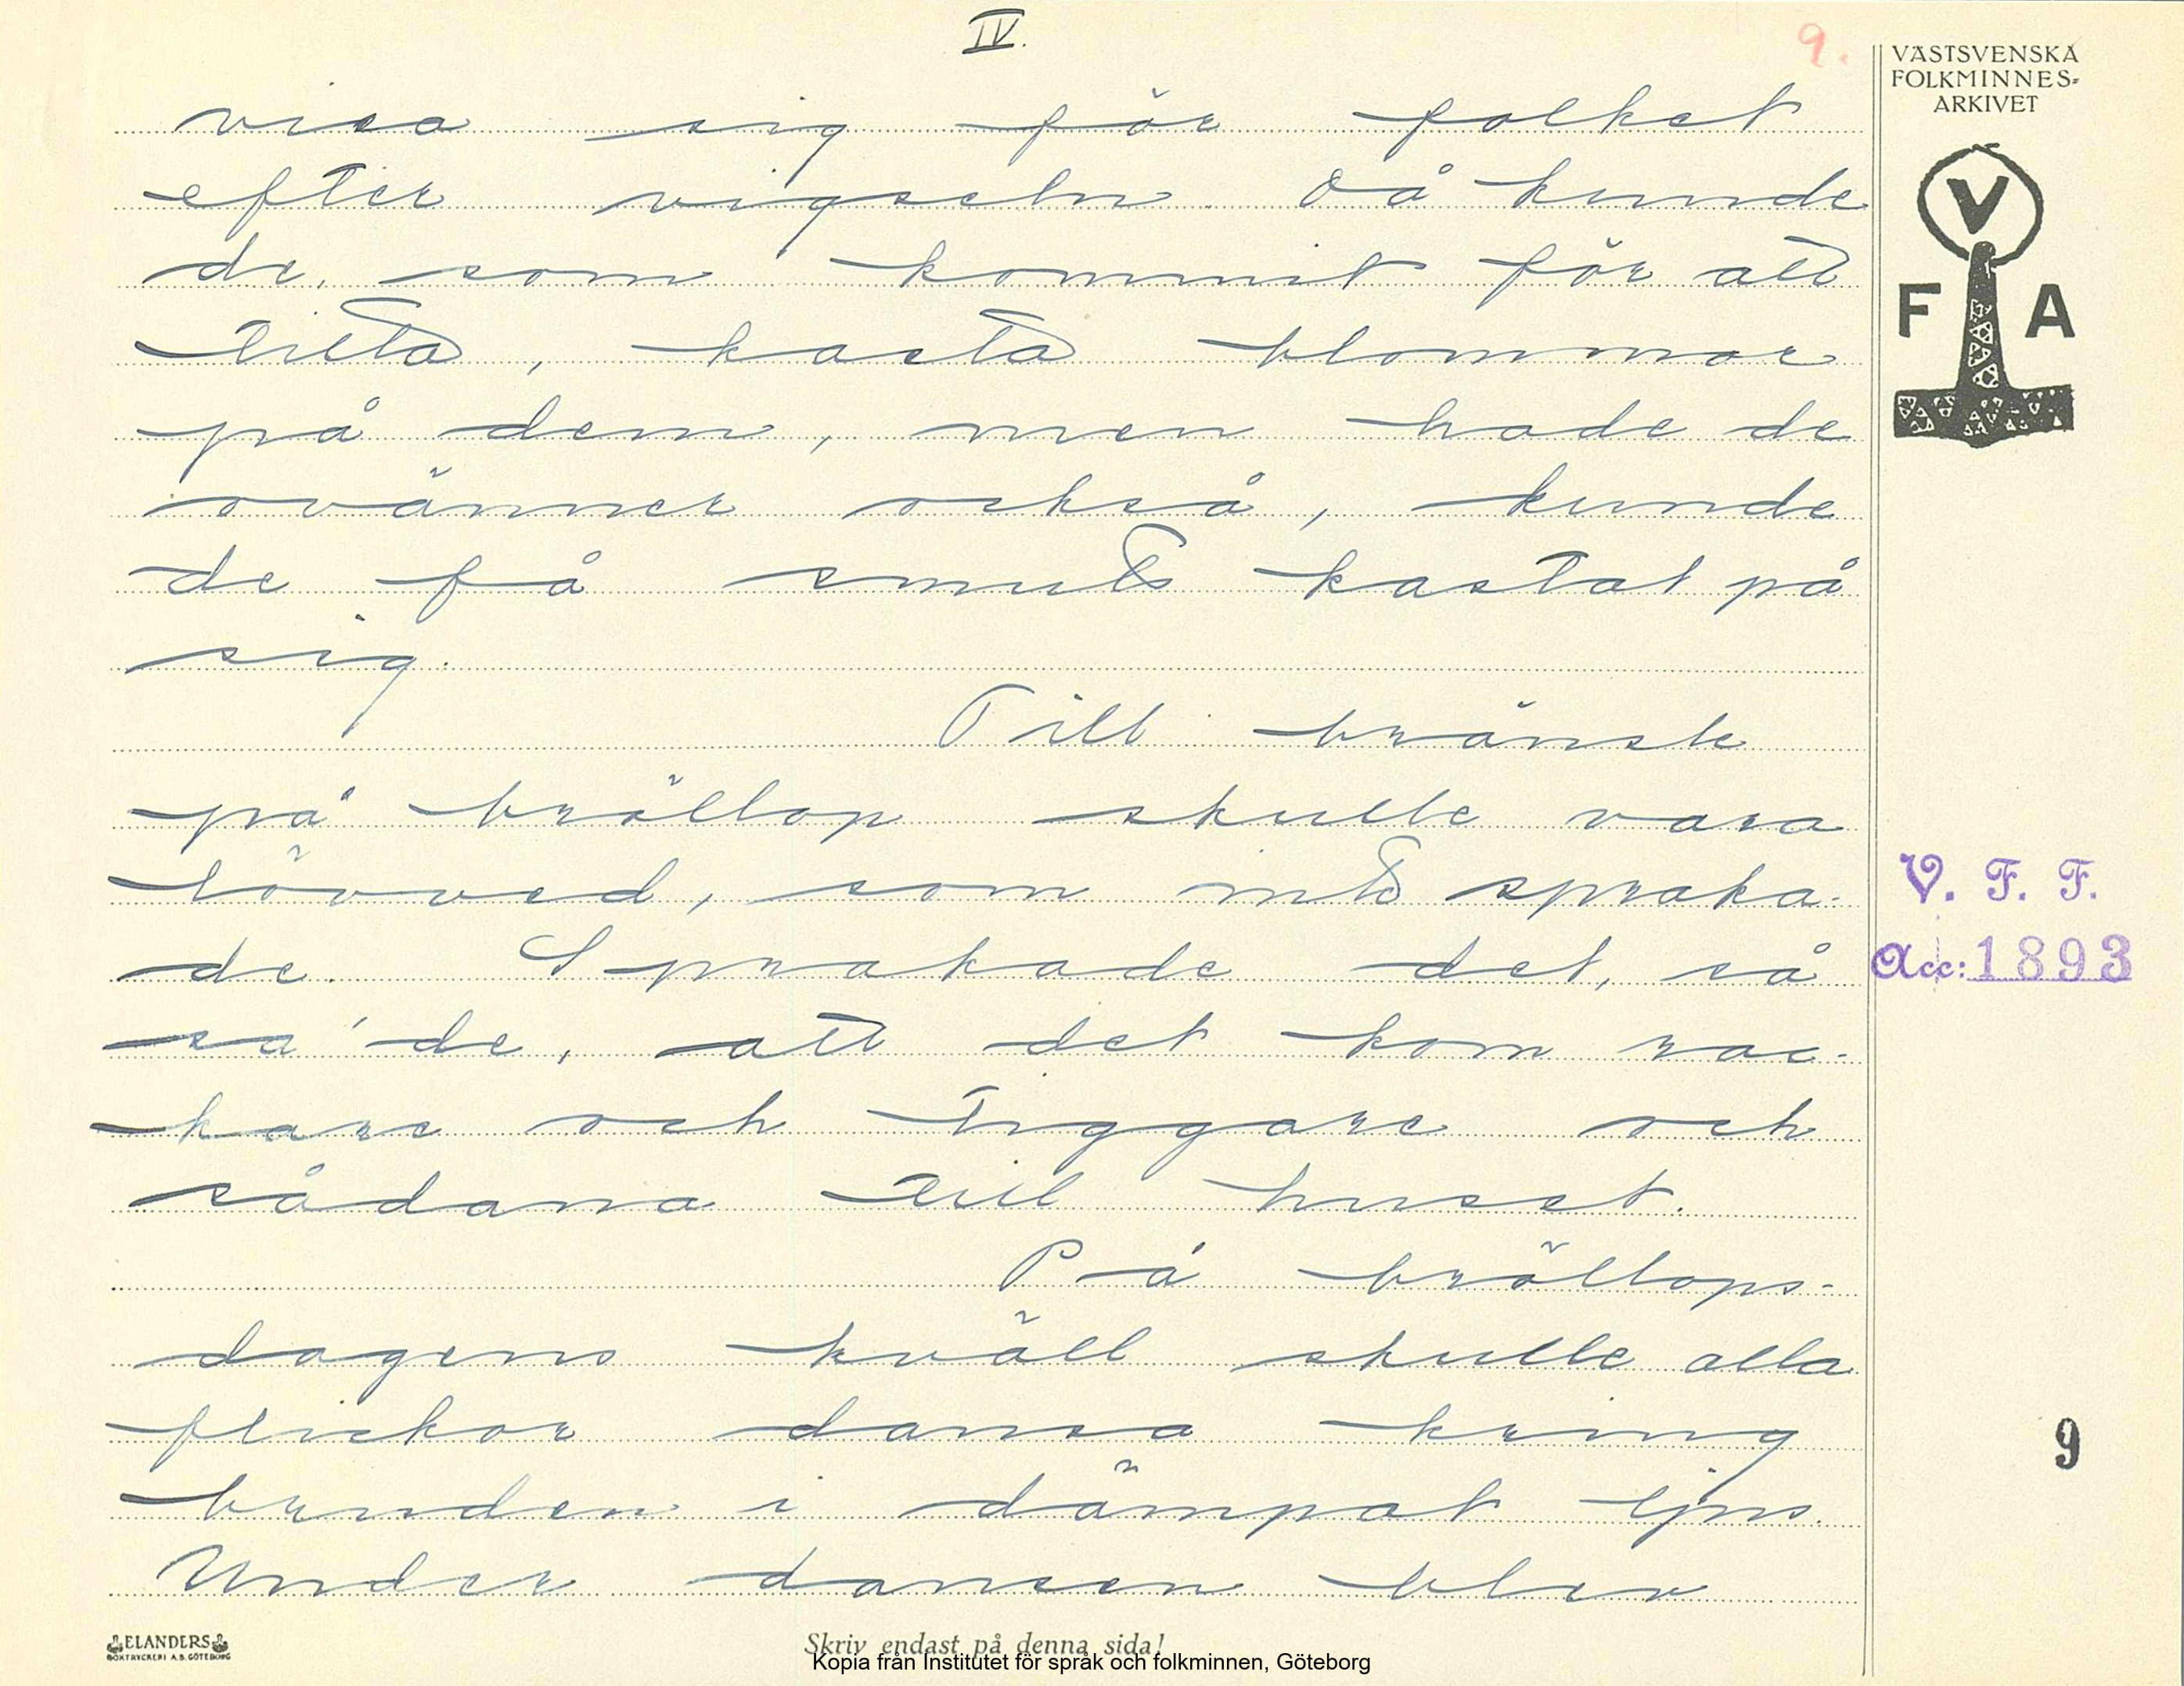 IV.
9.
VÄSTSVENSKA
FOLKMINNES-
ARKIVET
V
F A
visa sig för folket
efter vigseln. Då kunde
de, som kommit för att
titta, kasta blommor
på dem, men hade de
ovänner också, kunde
de få smuts kastat på
sig.
Till bränsle
på bröllop skulle vara
lövved, som inte spraka-
de. Sprakade det, så
sa' de, att det kom rac-
kare och tiggare och
sådana till huset.
På bröllops-
dagens kväll skulle alla
flickor dansa kring
bruden i dämpat ljus.
Under dansen blev
V. F. F.
Acc: 1893
9
ELANDERS
BOKTRYCKERI A.B. GÖTEBORG
Skriv endast på denna sida!
Kopia från Institutet för språk och folkminnen, Göteborg